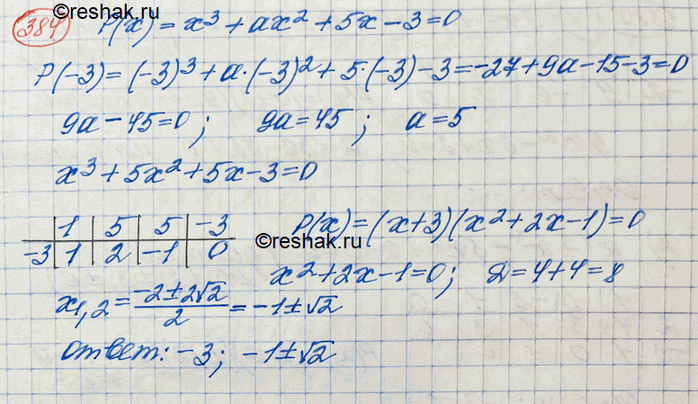 ©reshak.ru
384 P(x) = x³ + ax² + 5x - 3 = 0
P(-3) = (-3)³ + a·(-3)² + 5·(-3) - 3 = -27 + 9a - 15 - 3 = 0
9a - 45 = 0; 9a = 45; a = 5
x³ + 5x² + 5x - 3 = 0
| 1 | 5 | 5 | -3 P(x) = (x+3)(x² + 2x - 1) = 0
-3 | 1 | 2 | -1 | 0 ©reshak.ru
x² + 2x - 1 = 0; D = 4 + 4 = 8
x₁,₂ = (-2 ± 2√2)/2 = -1 ± √2
ответ: -3; -1 ± √2
©reshak.ru